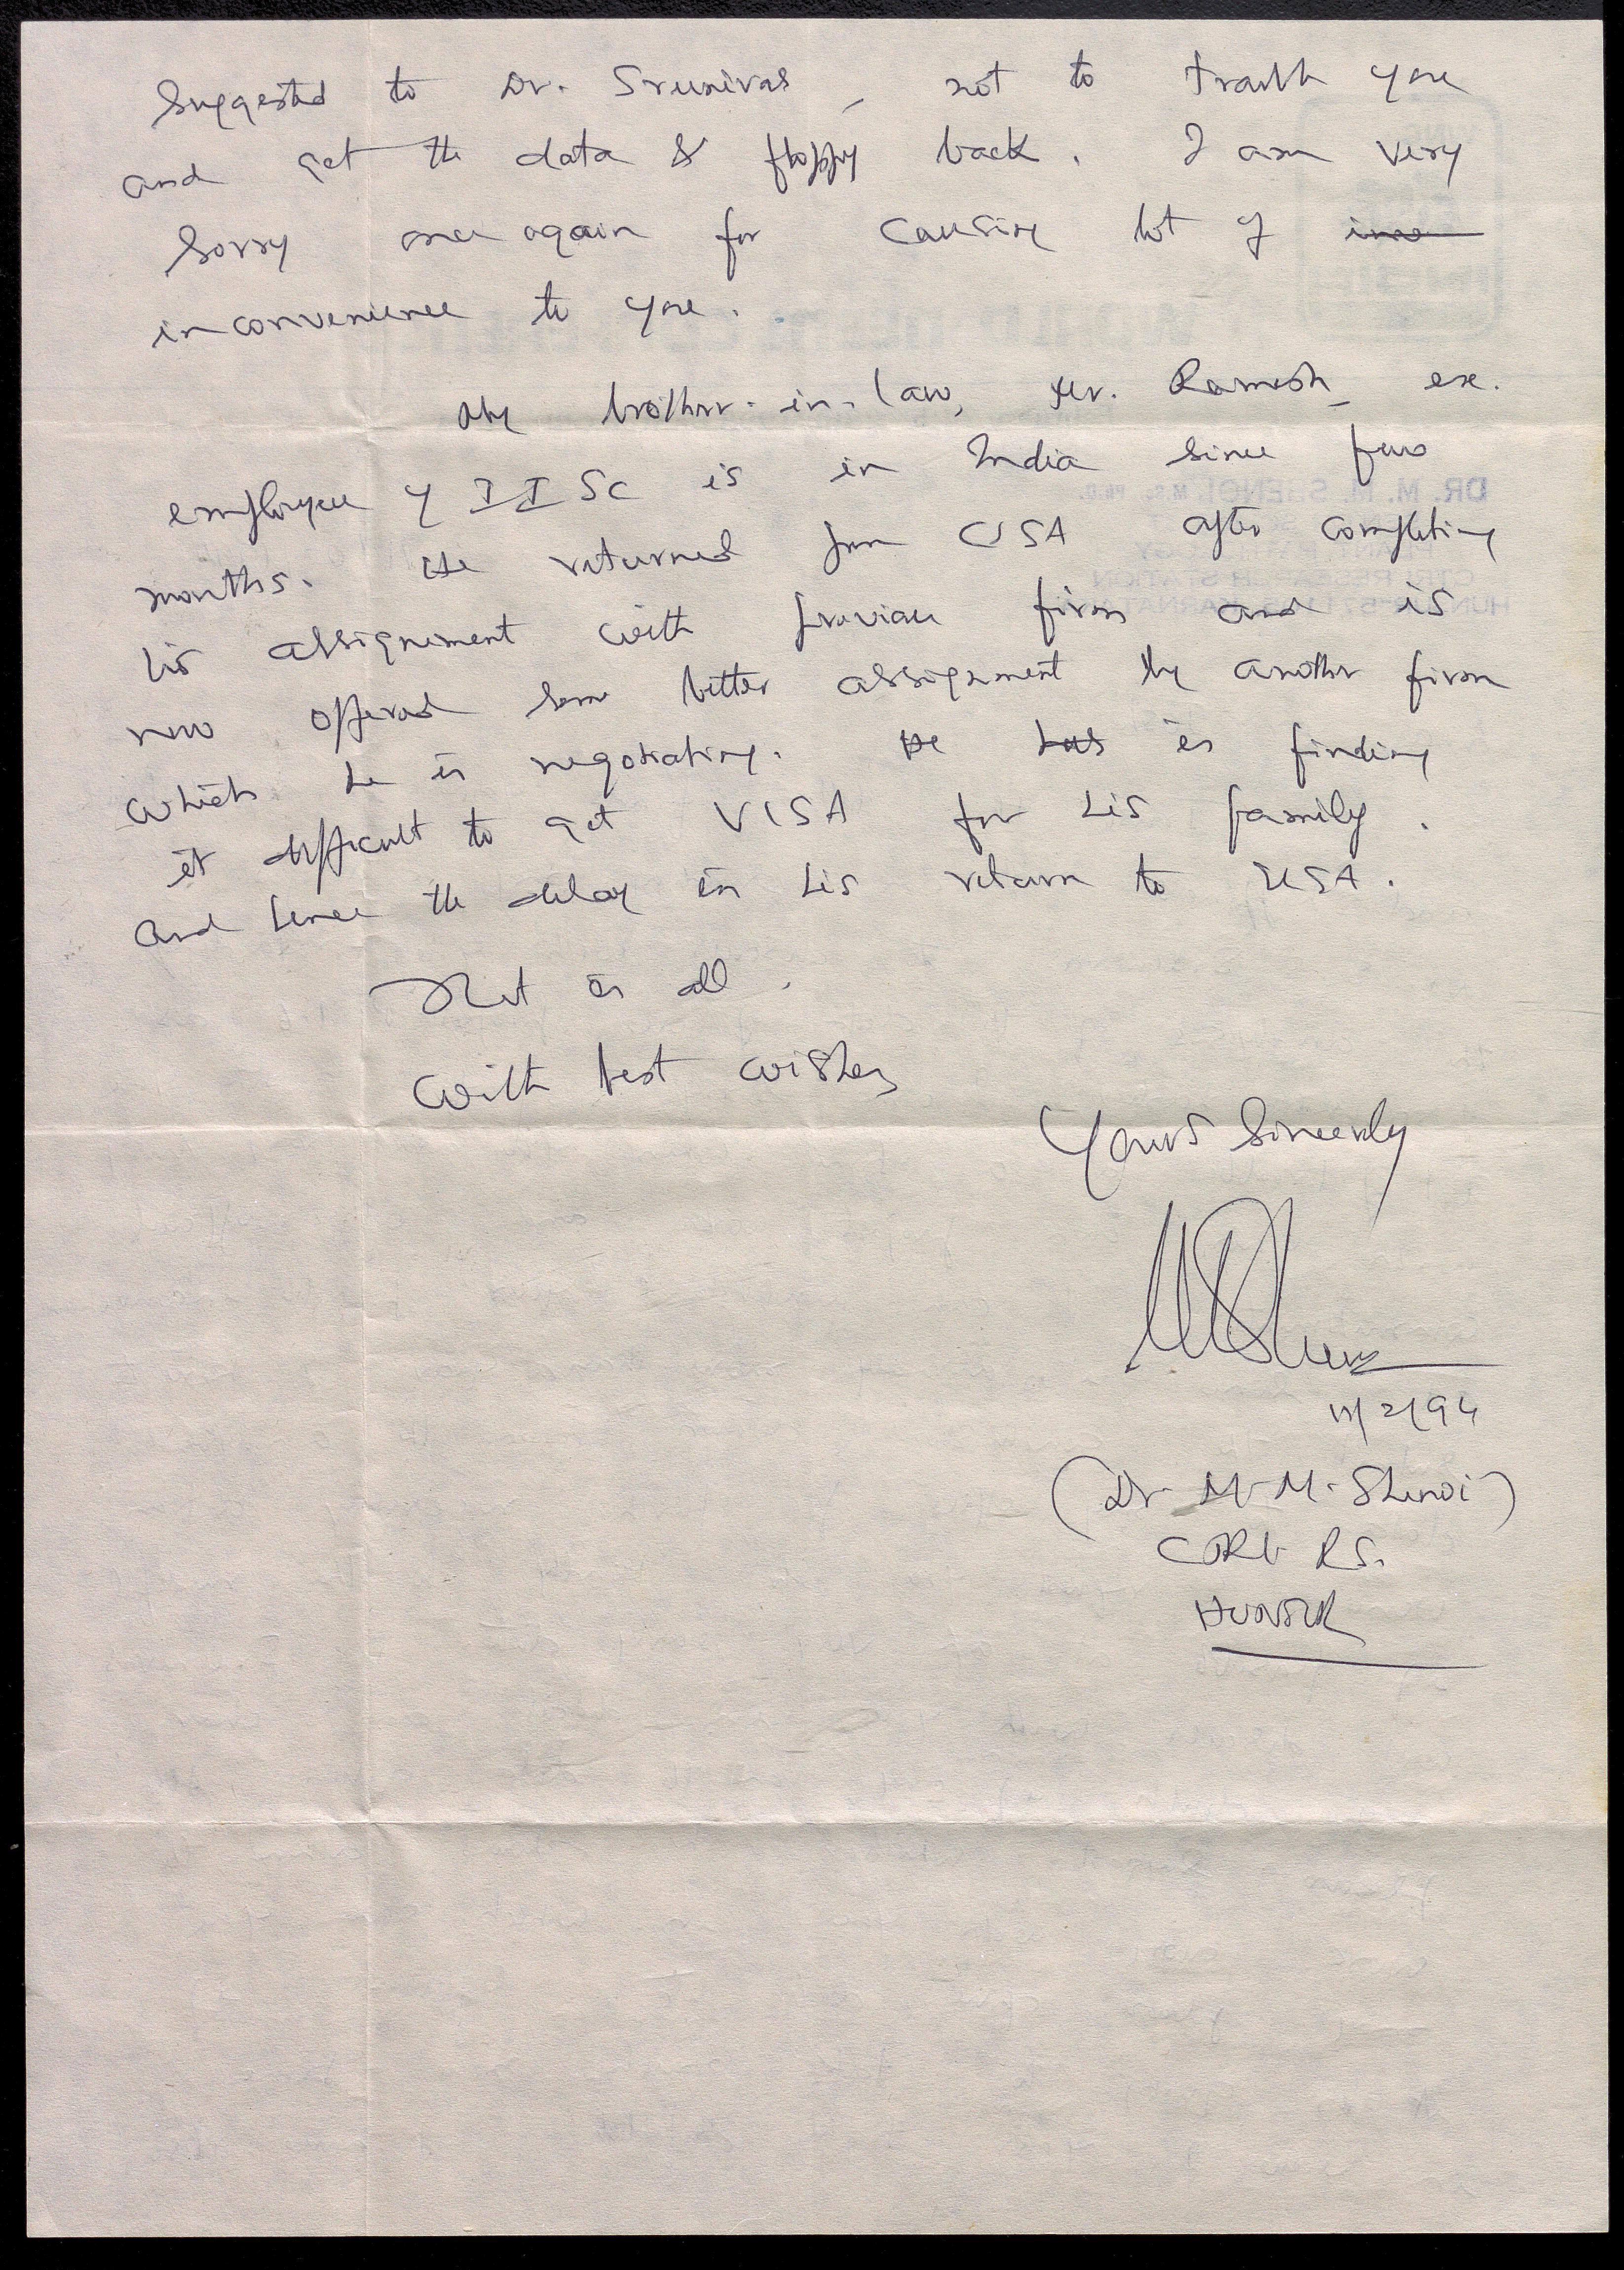 suggested to Dr. Srunivas, not to trouble you
and get the data & floppy back. I am very
sorry once again for causing lot of
inconvenience to you.
My brother-in-law, Mr. Ramesh, ex.
employee of IISc is in India since few
months. He returned from USA after completing
his assignment with previous firm and is
now offered some better assignment by another firm
which he is negotiating. He has is finding
it difficult to get VISA for his family.
and hence the delay in his return to USA.
That is all.
With best wishes
Yours Sincerely
/2/94
(Dr. M. M. Shenoi)
CTRI RS.
HUNSUR
DR. M. M. SHENOI, M.Sc. Ph.D.
CTRI RESEARCH STATION